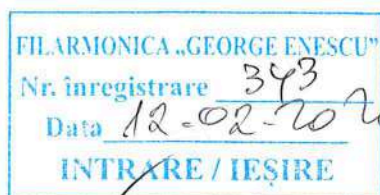 FILARMONICA „GEORGE ENESCU"
Nr. înregistrare 343
Data 12-02-202
INTRARE / IEȘIRE